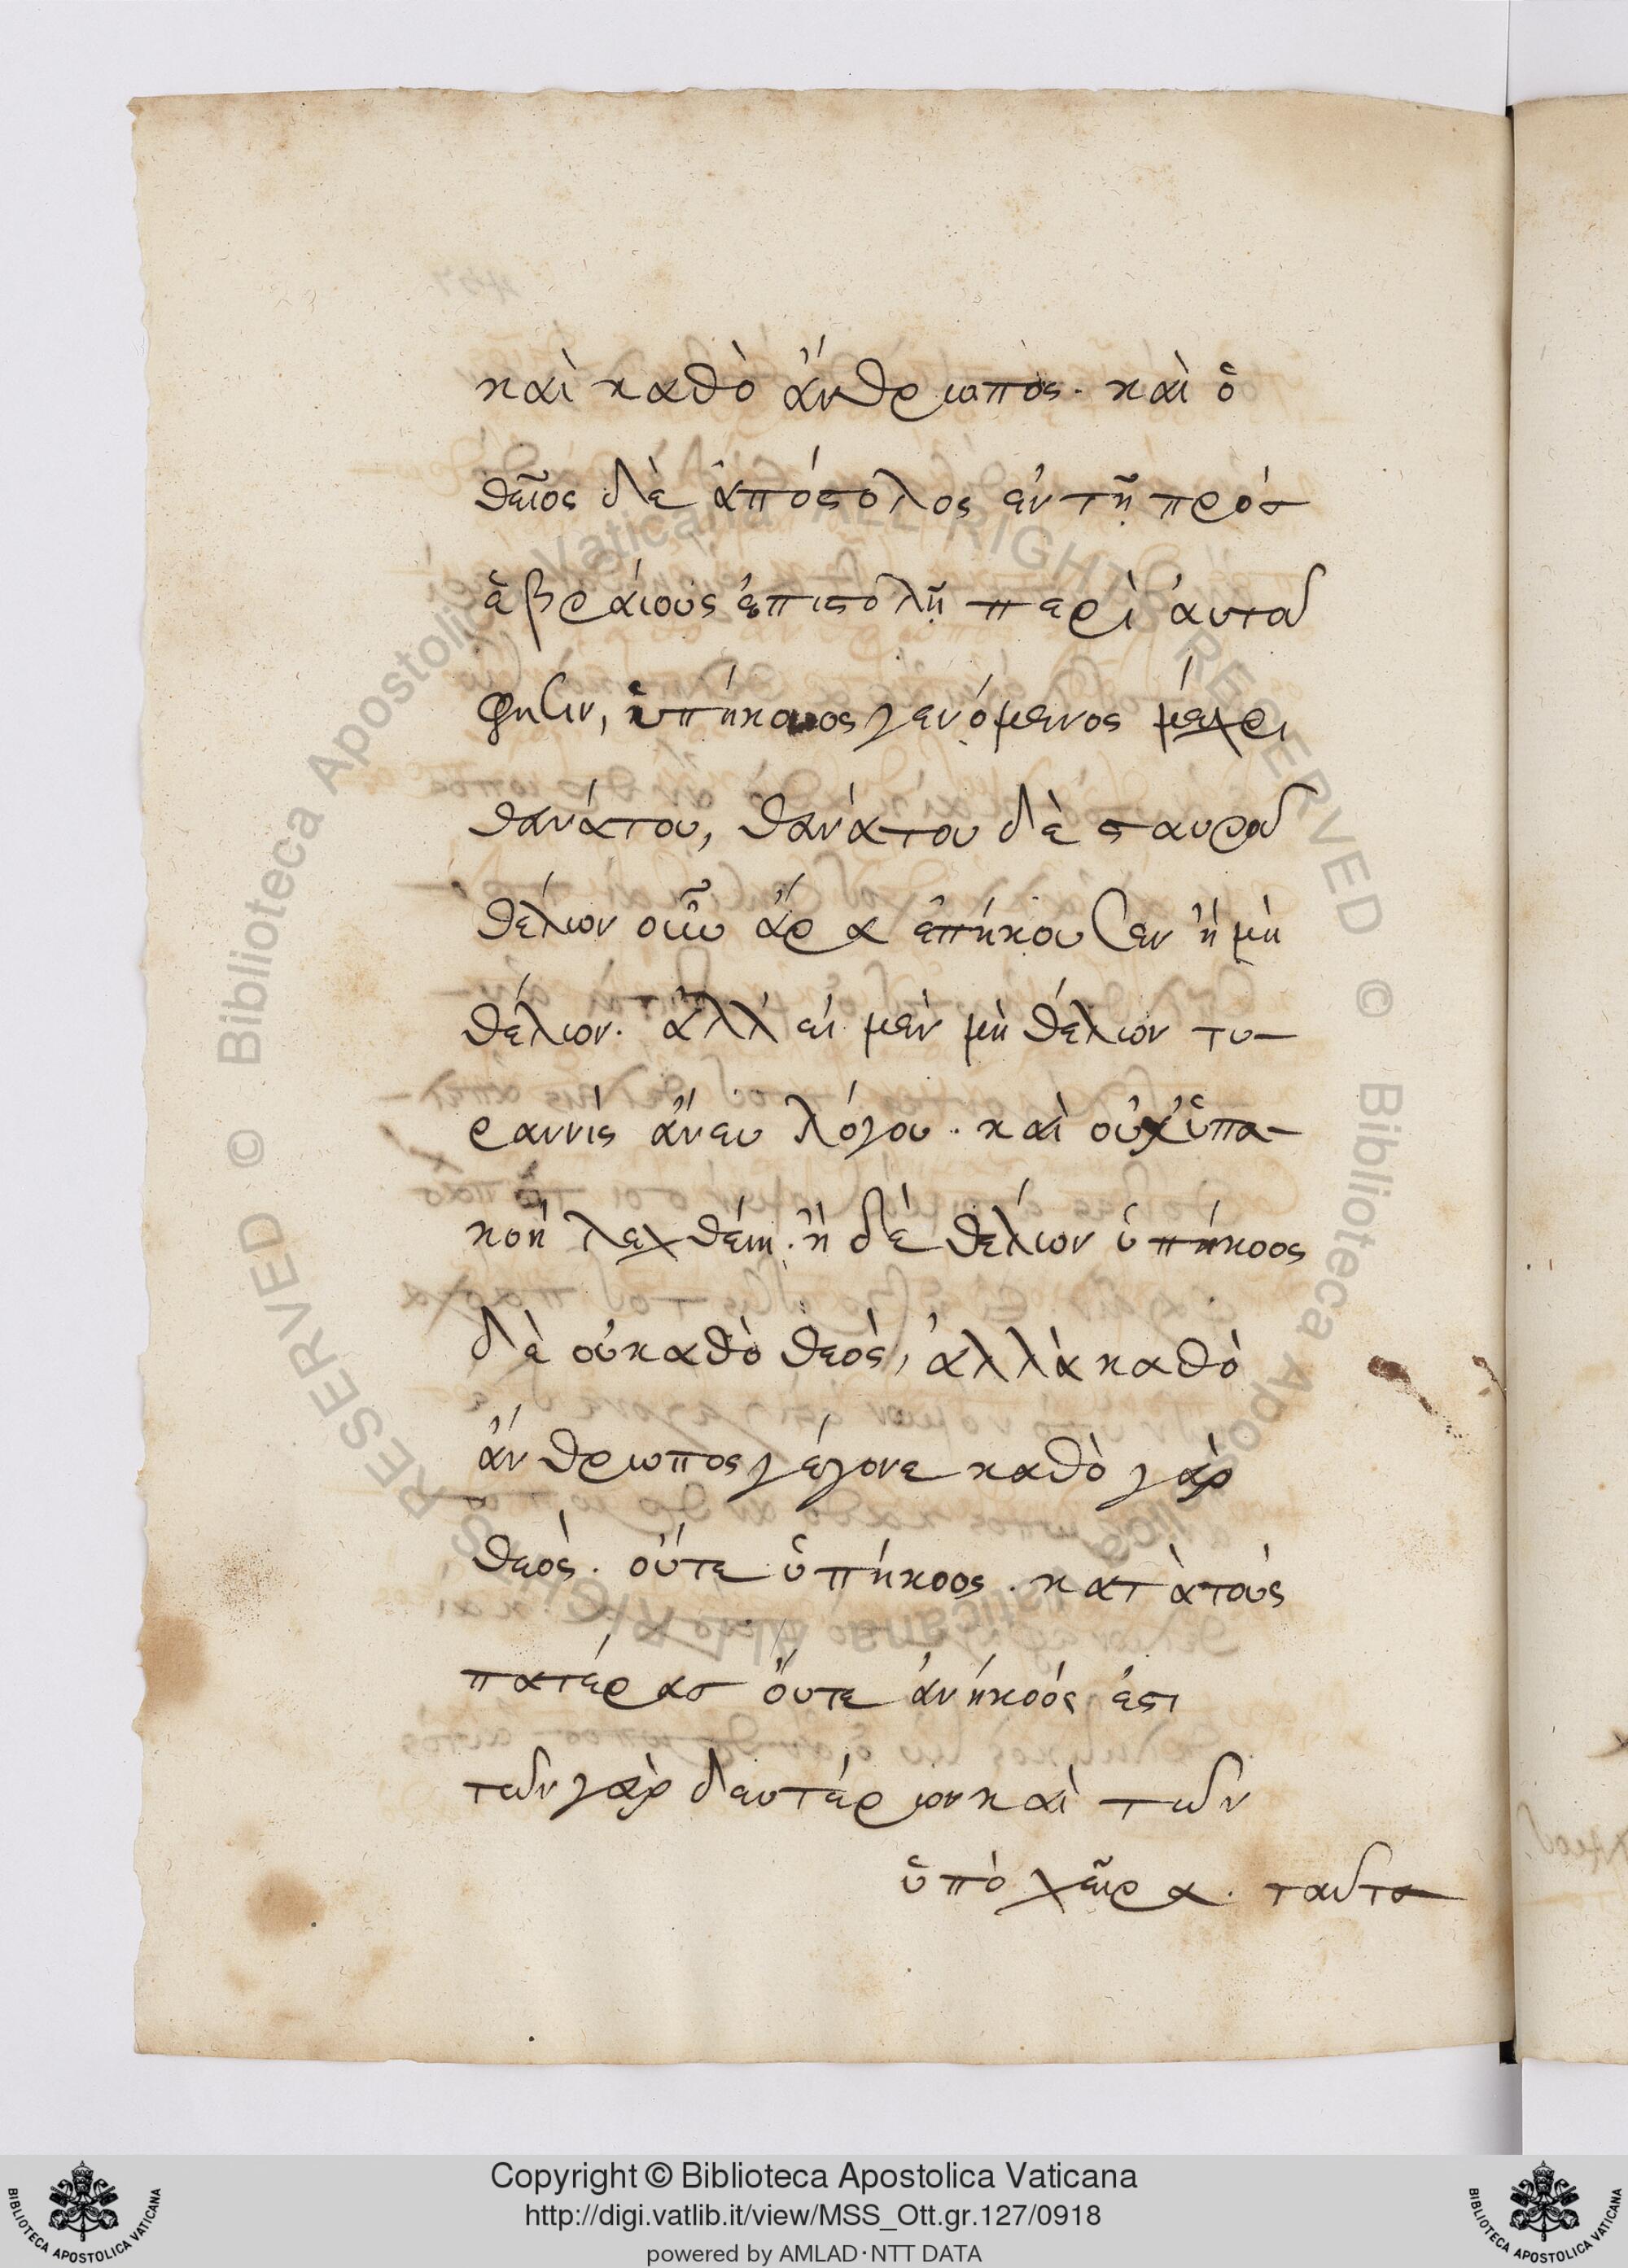 καὶ καθὸ ἄνθρωπος. καὶ ὁ
θεῖος δὲ ἀπόστολος ἐν τῇ πρὸσ
ἑβραίους ἐπιστολῇ περὶ ἀυτοῦ
φησιν, ὑπήκοος γενόμενος μέχρι
θανάτου, θανάτου δὲ σταυροῦ
θέλων οὖν ἄρα ἐπήκουσεν ἢ μὴ
θέλων. ἀλλ εἰ μὲν μὴ θέλων τυ-
ραννὶς ἄνευ λόγου. καὶ οὐχ ὑπα-
κοὴ λεχθείη. ἢ δὲ θέλων ὑπήκοος
δὲ οὐ καθὸ θεὸς, ἀλλὰ καθὸ
ἄνθρωπος γέγονε καθὸ γὰρ
θεὸς. οὔτε ὑπήκοος. κατὰ τοὺς
πατέρασ οὔτε ἀνήκοός ἐστι
τῶν γὰρ δευτέρων καὶ τῶν
ὑπὸ χεῖρα. ταῦτα
Copyright © Biblioteca Apostolica Vaticana
http://digi.vatlib.it/view/MSS_Ott.gr.127/0918
powered by AMLAD·NTT DATA